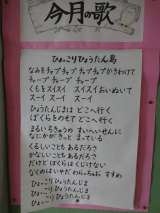 今月の歌
ひょっこりひょうたん島
なみをチャプチャプチャプチャプかきわけて
チャプ チャプ チャプ
くもをスイスイ スイスイおいぬいて
スーイ スーイ スーイ
ひょうたんじまは どこへ行く
ぼくらをのせて どこへ行く
まるいちきゅうの すいへいせんに
なにかがきっと まっている
くるしいこともあるだろさ
かなしいこともあるだろさ
だけど ぼくらはくじけない
なくのはいやだ わらっちゃおう すすめ
ひょっこり ひょうたんじま
ひょっこり ひょうたんじま
ひょっこり ひょうたんじま